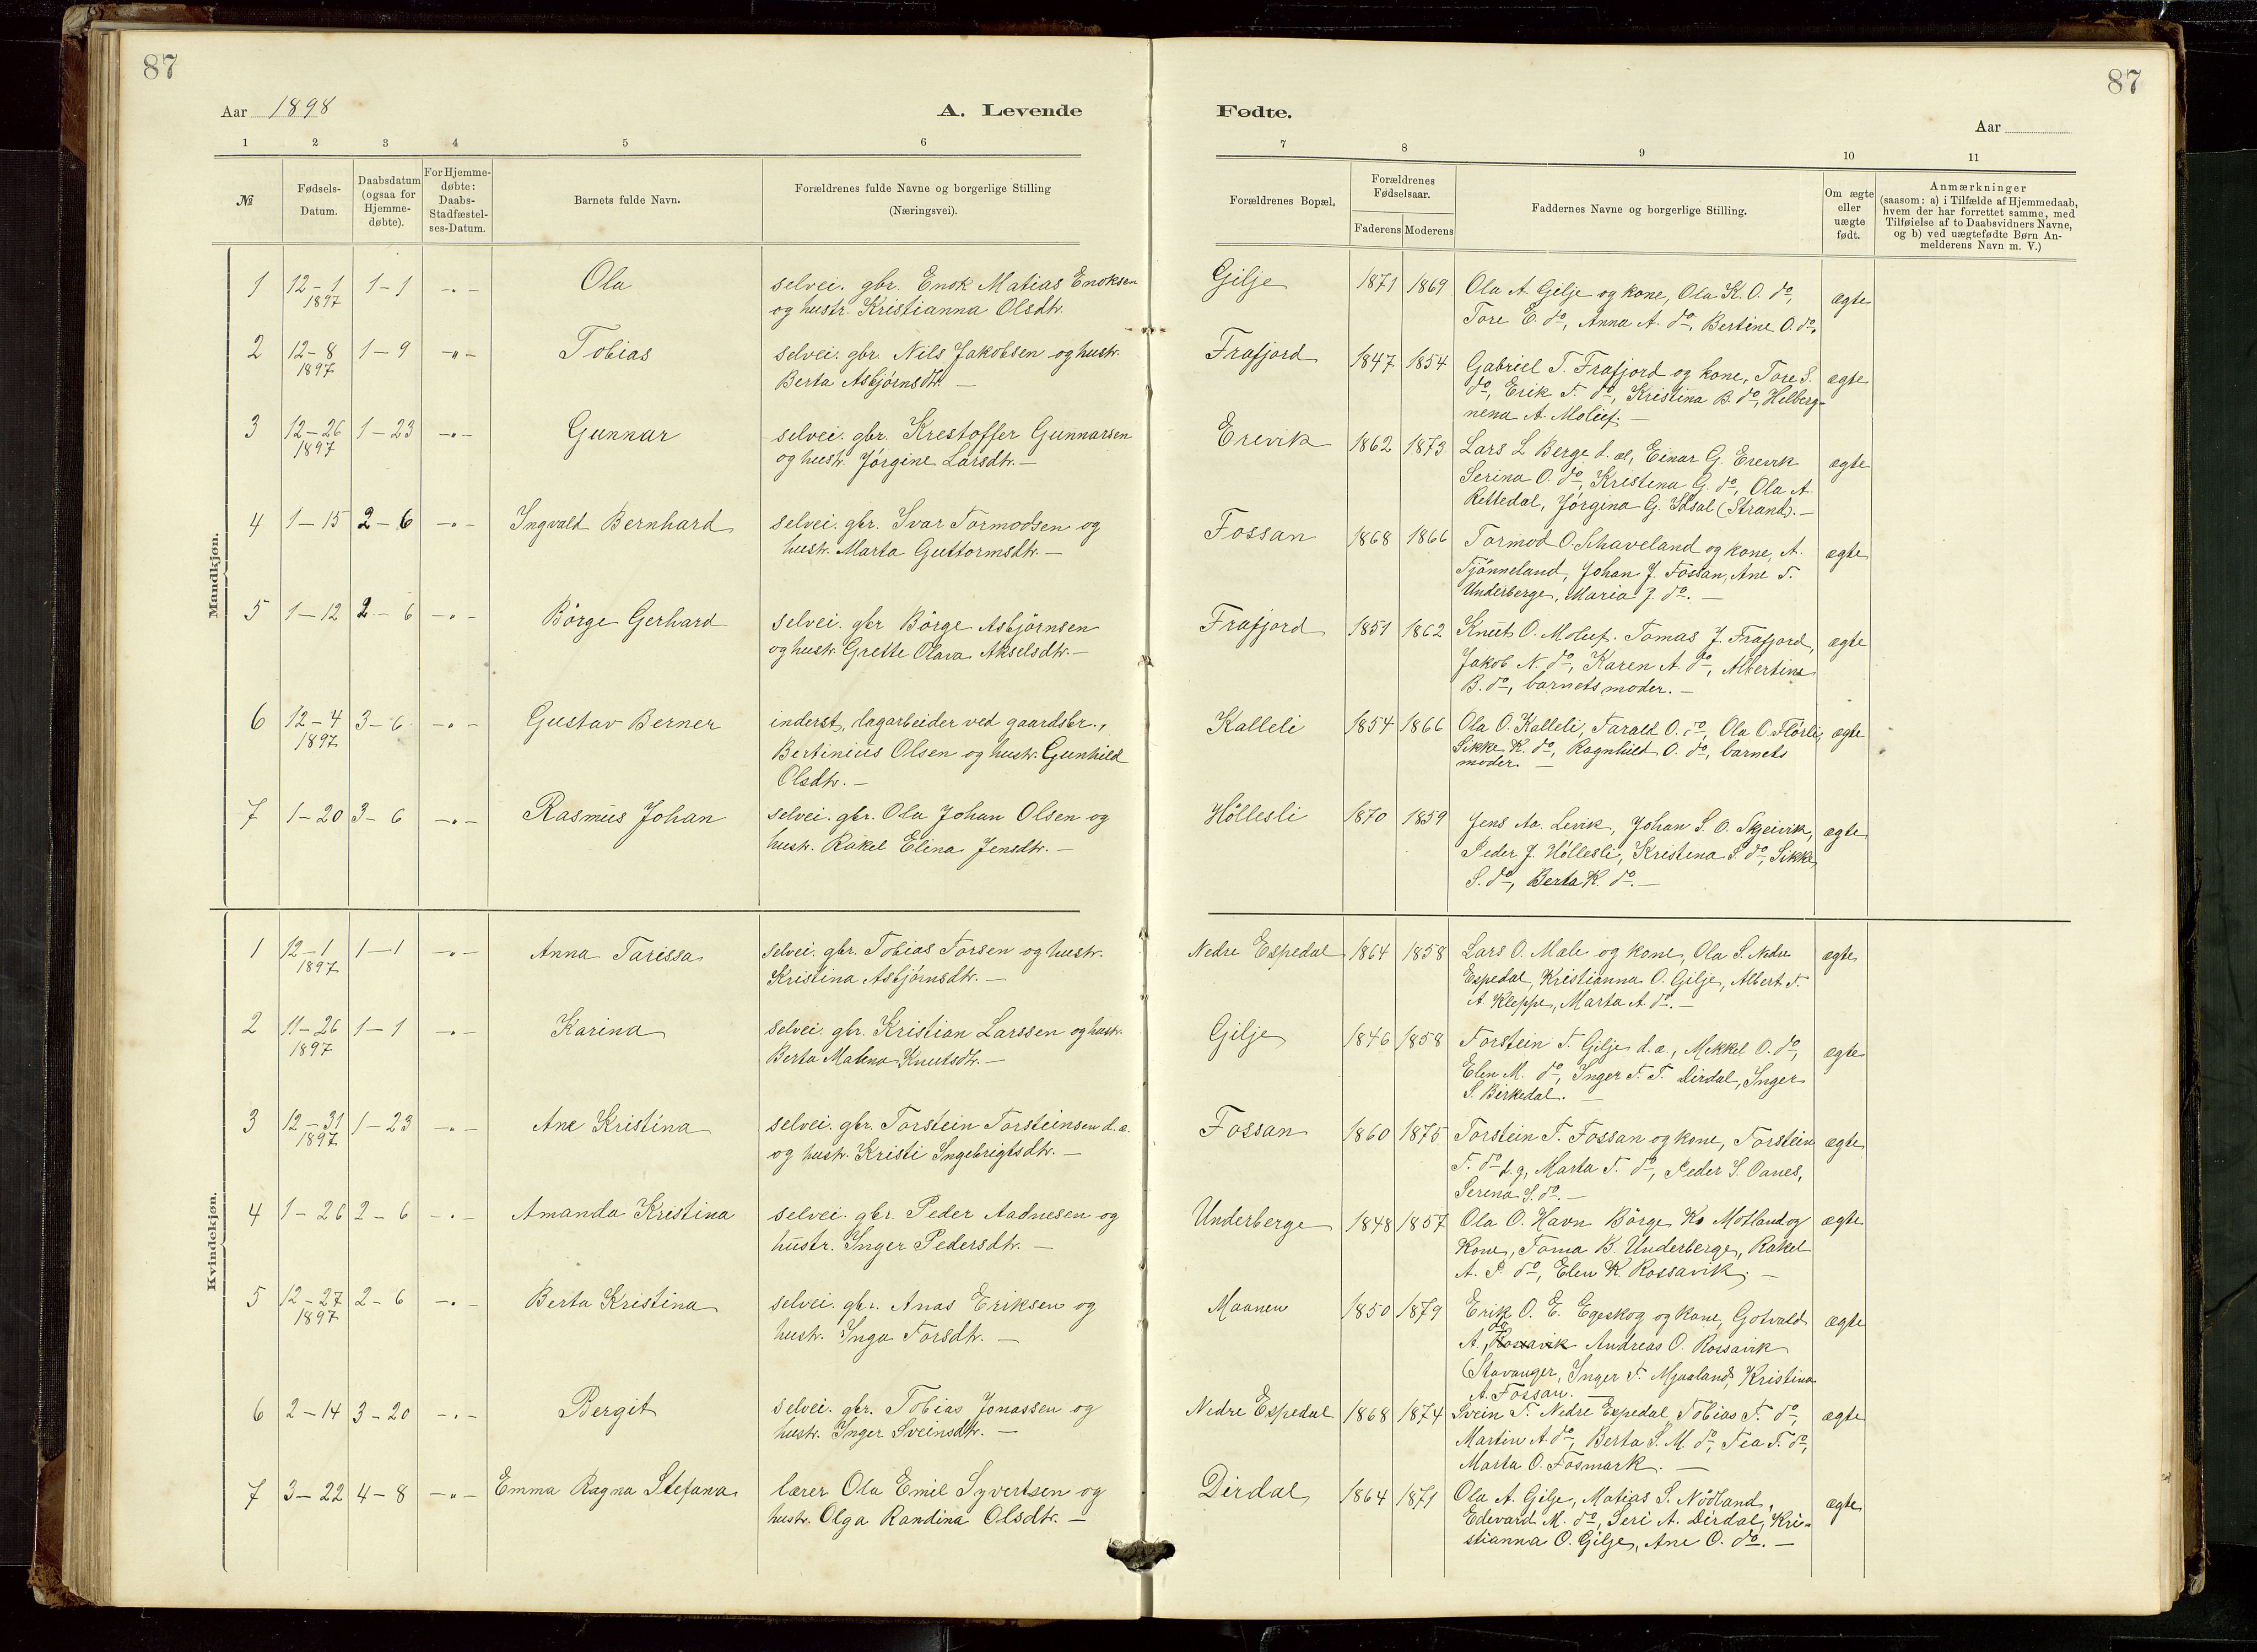 87
87
Aar 1898
A. Levende
Fødte.
Aar
1 2 3 4 5 6 7 8 9 10 11
№
Fødsels-
Datum.
Daabsdatum
(ogsaa for
Hjemme-
døbte).
For Hjemme-
døbte:
Daabs-
Stadfæstel-
ses-Datum.
Barnets fulde Navn.
Forældrenes fulde Navne og borgerlige Stilling
(Næringsvei).
Forældrenes Bopæl.
Forældrenes
Fødselsaar.
Faderens Moderens
Faddernes Navne og borgerlige Stilling.
Om ægte
eller
uægte
født.
Anmærkninger
(saasom: a) i Tilfælde af Hjemmedaab,
hvem der har forrettet samme, med
Tilføielse af to Daabsvidners Navne,
og b) ved uægtefødte Børn An-
melderens Navn m. V.)
Mandkjøn.
1 12-1 1-1 -"- Ola selvei. gbr. Enok Matias Enoksen
1897 og hustr. Kristianna Olsdtr.
Gilje 1871 1869 Ola A. Gilje og kone, Ola K. O. do, ægte
Tore E. do, Anna A. do, Bertine O. do.
2 12-8 1-9 -"- Tobias selvei. gbr. Nils Jakobsen og hustr.
1897 Berta Asbjörnsdtr. -
Frafjord 1847 1854 Gabriel T. Frafjord og kone, Tore S. ægte
do, Erik T. do, Kristina B. do, Helberg-
nena A. Moluf. -
3 12-26 1-23 -"- Gunnar selvei. gbr. Krestoffer Gunnarsen
1897 og hustr. Jörgine Larsdtr. -
Erevik 1862 1873 Lars L Berge d. æl, Einar G. Erevik ægte
Serina O. do, Kristena G. do, Ola A.
Rettedal, Jörgina G. Idsal (Strand). -
4 1-15 2-6 -"- Ingvald Bernhard selvei. gbr. Ivar Tormodsen og
hustr. Marta Guttormsdtr. -
Fossan 1868 1866 Tormod O. Schaveland og kone, A. ægte
Tjönneland, Johan J. Fossan, Ane T.
Underberge, Maria J. do. -
5 1-12 2-6 -"- Börge Gerhard selvei. gbr Börge Asbjörnsen
og hustr. Grette Olava Akselsdtr. -
Frafjord 1851 1862 Knut O. Moluf. Tomas J. Frafjord, ægte
Jakob N. do, Karen A. do, Albertine
B. do, barnets moder. -
6 12-4 3-6 -"- Gustav Berner inderst, dagarbeider ved gaardsbr.,
1897 Bertinius Olsen og hustr. Gunhild
Olsdtr. -
Kalleli 1854 1866 Ola O. Kalleli, Tarald O. do, Ola O. Flörli, ægte
Sikke K. do, Ragnhild O. do, barnets
moder. -
7 1-20 3-6 -"- Rasmus Johan selvei. gbr. Ola Johan Olsen og
hustr. Rakel Elina Jensdtr. -
Höllesli 1870 1859 Jens Aa. Levik, Johan S. O. Skjeivik, ægte
Peder J. Höllesli, Kristena S. do, Sikke
S. do, Berta K. do. -
Kvindekjøn.
1 12-1 1-1 -"- Anna Tarissa selvei. gbr. Tobias Torsen og hustr.
1897 Kristina Asbjörnsdtr. -
Nedre Espedal 1864 1858 Lars O. Male og kone, Ola S. Nedre ægte
Espedal, Kristianna O. Gilje, Albert T.
A. Kleppe, Marta A. do. -
2 11-26 1-1 -"- Karina selvei. gbr. Kristian Larssen og hustr.
1897 Berta Malena Knutsdtr. -
Gilje 1846 1858 Torstein T. Gilje d. æ., Mikkel O. do, ægte
Elen M. do, Inger T. T. Dirdal, Inger
S. Birkedal. -
3 12-31 1-23 -"- Ane Kristina selvei. gbr. Torstein Torsteinsen d. æ.
1897 og hustr. Kristi Ingebrigtsdtr. -
Fossan 1860 1875 Torstein T. Fossan og kone, Torstein ægte
T. do d. y, Marta T. do, Peder S. Oanes,
Serena S. do. -
4 1-26 2-6 -"- Amanda Kristina selvei. gbr. Peder Aadnesen og
hustr. Inger Pedersdtr. -
Underberge 1848 1857 Ola O. Havn Börge K. Motland og ægte
kone, Toma B. Underberge, Rakel
A. P. do, Elen K. Rossavik. -
5 12-27 2-6 -"- Berta Kristina selvei. gbr. Anas Eriksen og
1897 hustr. Inga Torsdtr. -
Maanen 1850 1879 Erik O. E. Egeskog og kone, Gotvald ægte
do
A., Rossavik Andreas O. Rossavik
(Stavanger, Inger T. Mjaaland, Kristina
A. Fossan. -
6 2-14 3-20 -"- Bergit selvei. gbr. Tobias Jonassen og
hustr. Inger Sveinsdtr. -
Nedre Espedal 1868 1874 Svein T. Nedre Espedal, Tobias T. do, ægte
Martin A. do, Berta S. M. do, Tea T. do,
Marta O. Fosmark. -
7 3-22 4-8 -"- Emma Ragna Stefana lærer Ola Emil Syvertsen og
hustr. Olga Randina Olsdtr. -
Dirdal 1864 1871 Ola A. Gilje, Matias S. Nödland, ægte
Edevard M. do, Seri A. Dirdal, Kri-
stianna O. Gilje, Ane O. do. -